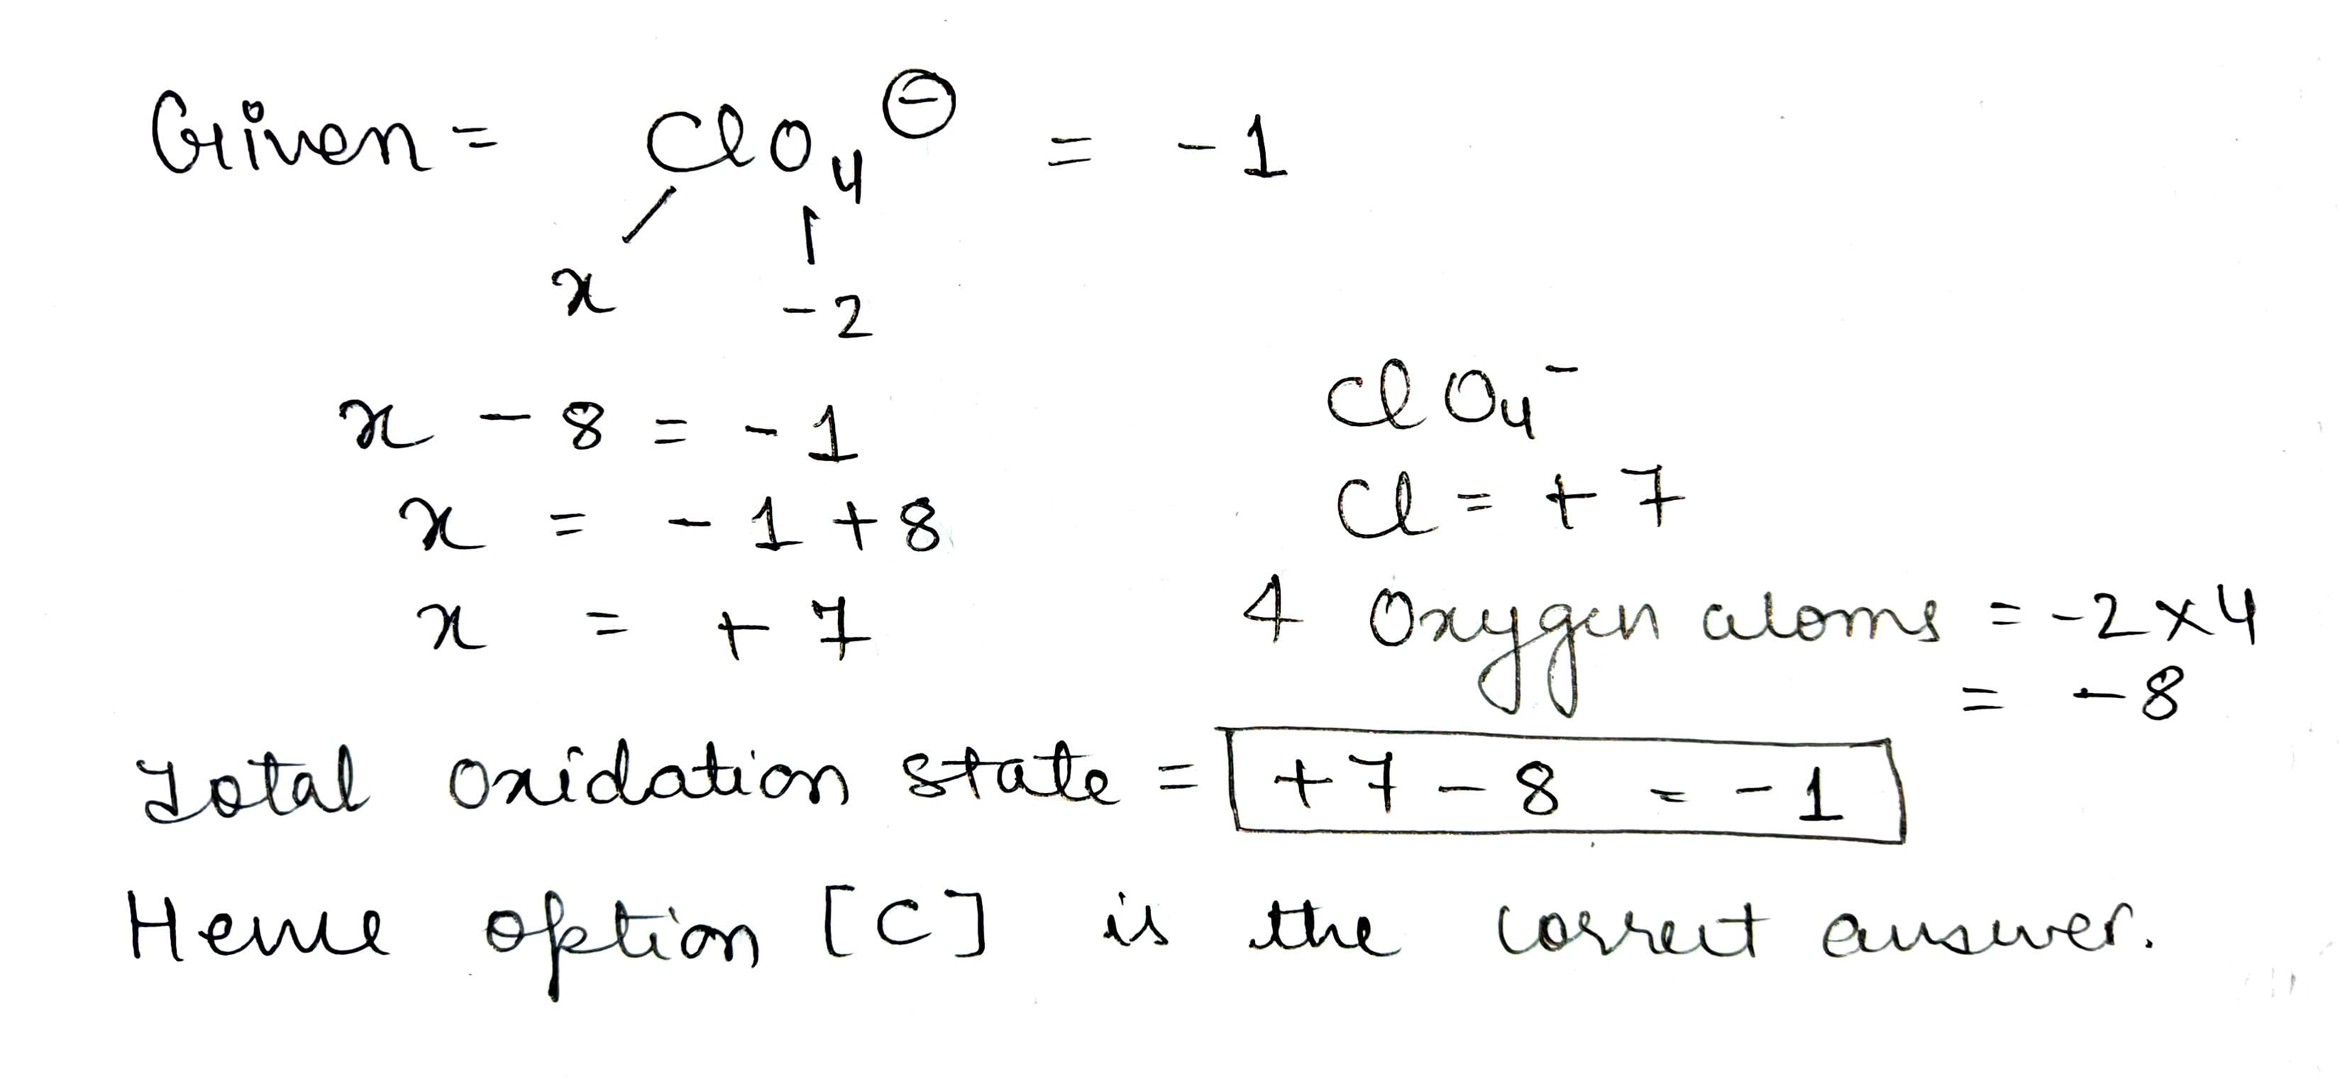 Given = ClO₄⊖ = -1
x -2
x - 8 = -1
x = -1 + 8
x = + 7
ClO₄⁻
Cl = + 7
4 Oxygen atoms = -2 × 4
= -8
Total oxidation state = +7 - 8 = -1
Hence option [C] is the correct answer.